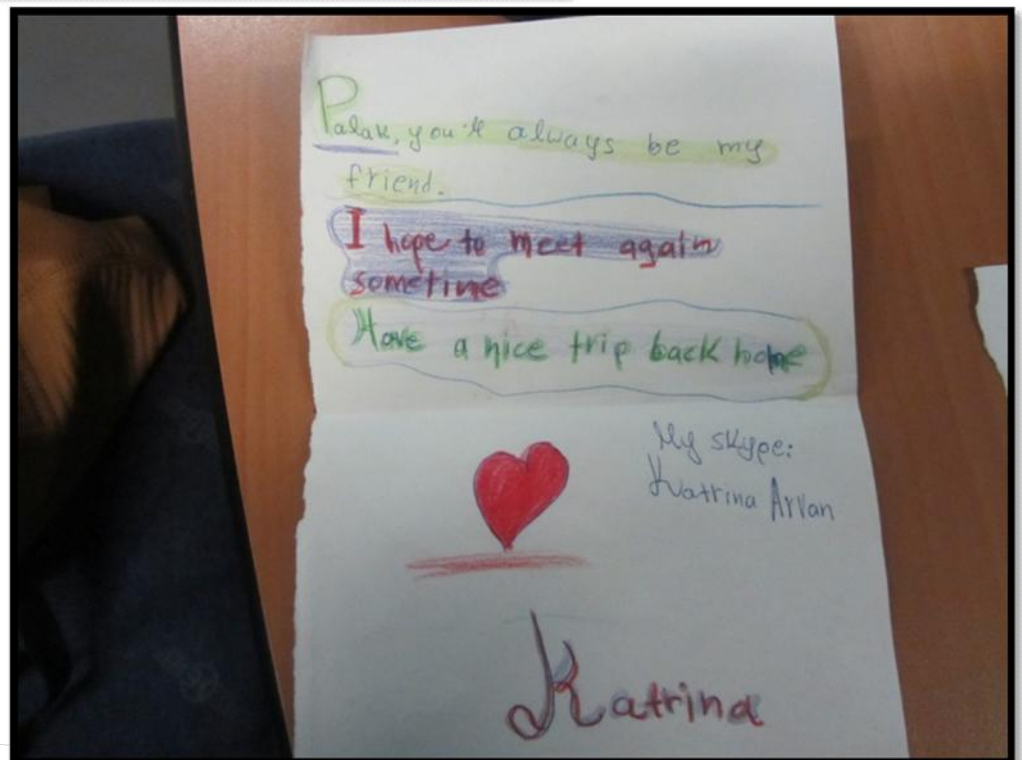 Palak, you'll always be my
friend.
I hope to meet again
sometime
Have a nice trip back home
My skype:
Katrina Arvan
Katrina